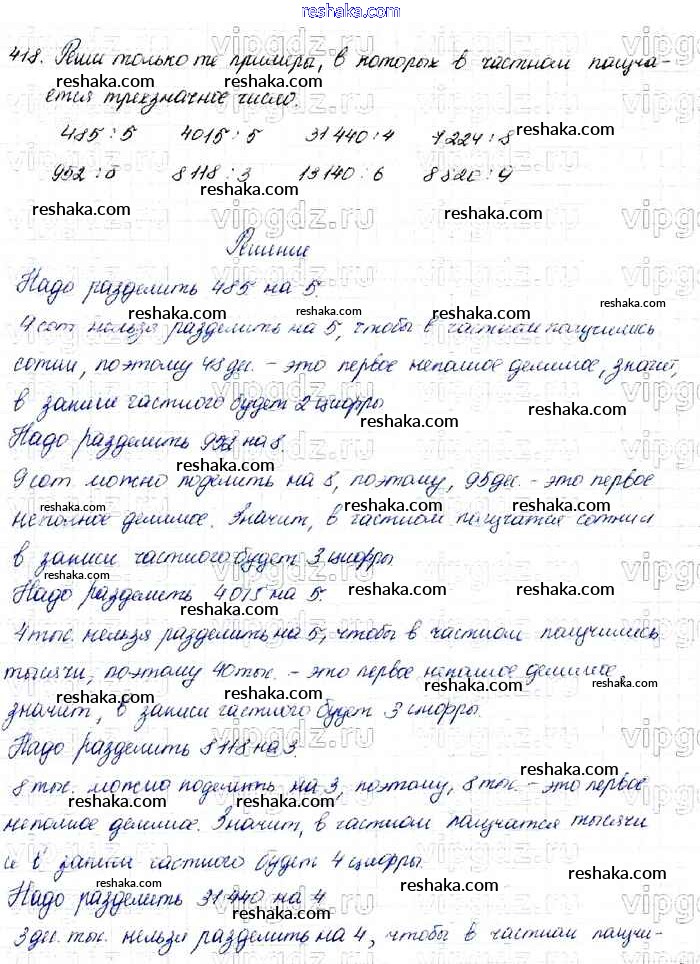 reshaka.com
reshaka.com
418. Реши только те примеры, в которых в частном получа-
ется трехзначное число.
485 : 5 4015 : 5 31 440 : 4 7224 : 8 reshaka.com
952 : 8 8118 : 3 19140 : 6 8820 : 9
reshaka.com reshaka.com reshaka.com
vipgdz.ru
Решение
reshaka.com
Надо разделить 485 на 5.
reshaka.com reshaka.com
4 сот. нельзя разделить на 5, чтобы в частном получились
сотни, поэтому 48 дес. – это первое неполное делимое, значит,
reshaka.com
в записи частного будет 2 цифры
reshaka.com
Надо разделить 952 на 8.
reshaka.com
9 сот. можно поделить на 8, поэтому, 95 дес. – это первое
reshaka.com reshaka.com reshaka.com
неполное делимое. Значит, в частном получатся сотни и
в записи частного будет 3 цифры
reshaka.com reshaka.com
Надо разделить 4015 на 5.
reshaka.com
4 тыс. нельзя разделить на 5, чтобы в частном получились
тысячи, поэтому 40 тыс. – это первое неполное делимое,
reshaka.com reshaka.com reshaka.com
значит, в записи частного будет 3 цифры.
Надо разделить 8118 на 3.
reshaka.com
8 тыс. можно поделить на 3, поэтому, 8 тыс. – это первое
reshaka.com reshaka.com
неполное делимое. Значит, в частном получатся тысячи
и в записи частного будет 4 цифры.
reshaka.com reshaka.com
Надо разделить 31 440 на 4
reshaka.com reshaka.com
3 дес. тыс. нельзя разделить на 4, чтобы в частном получи-